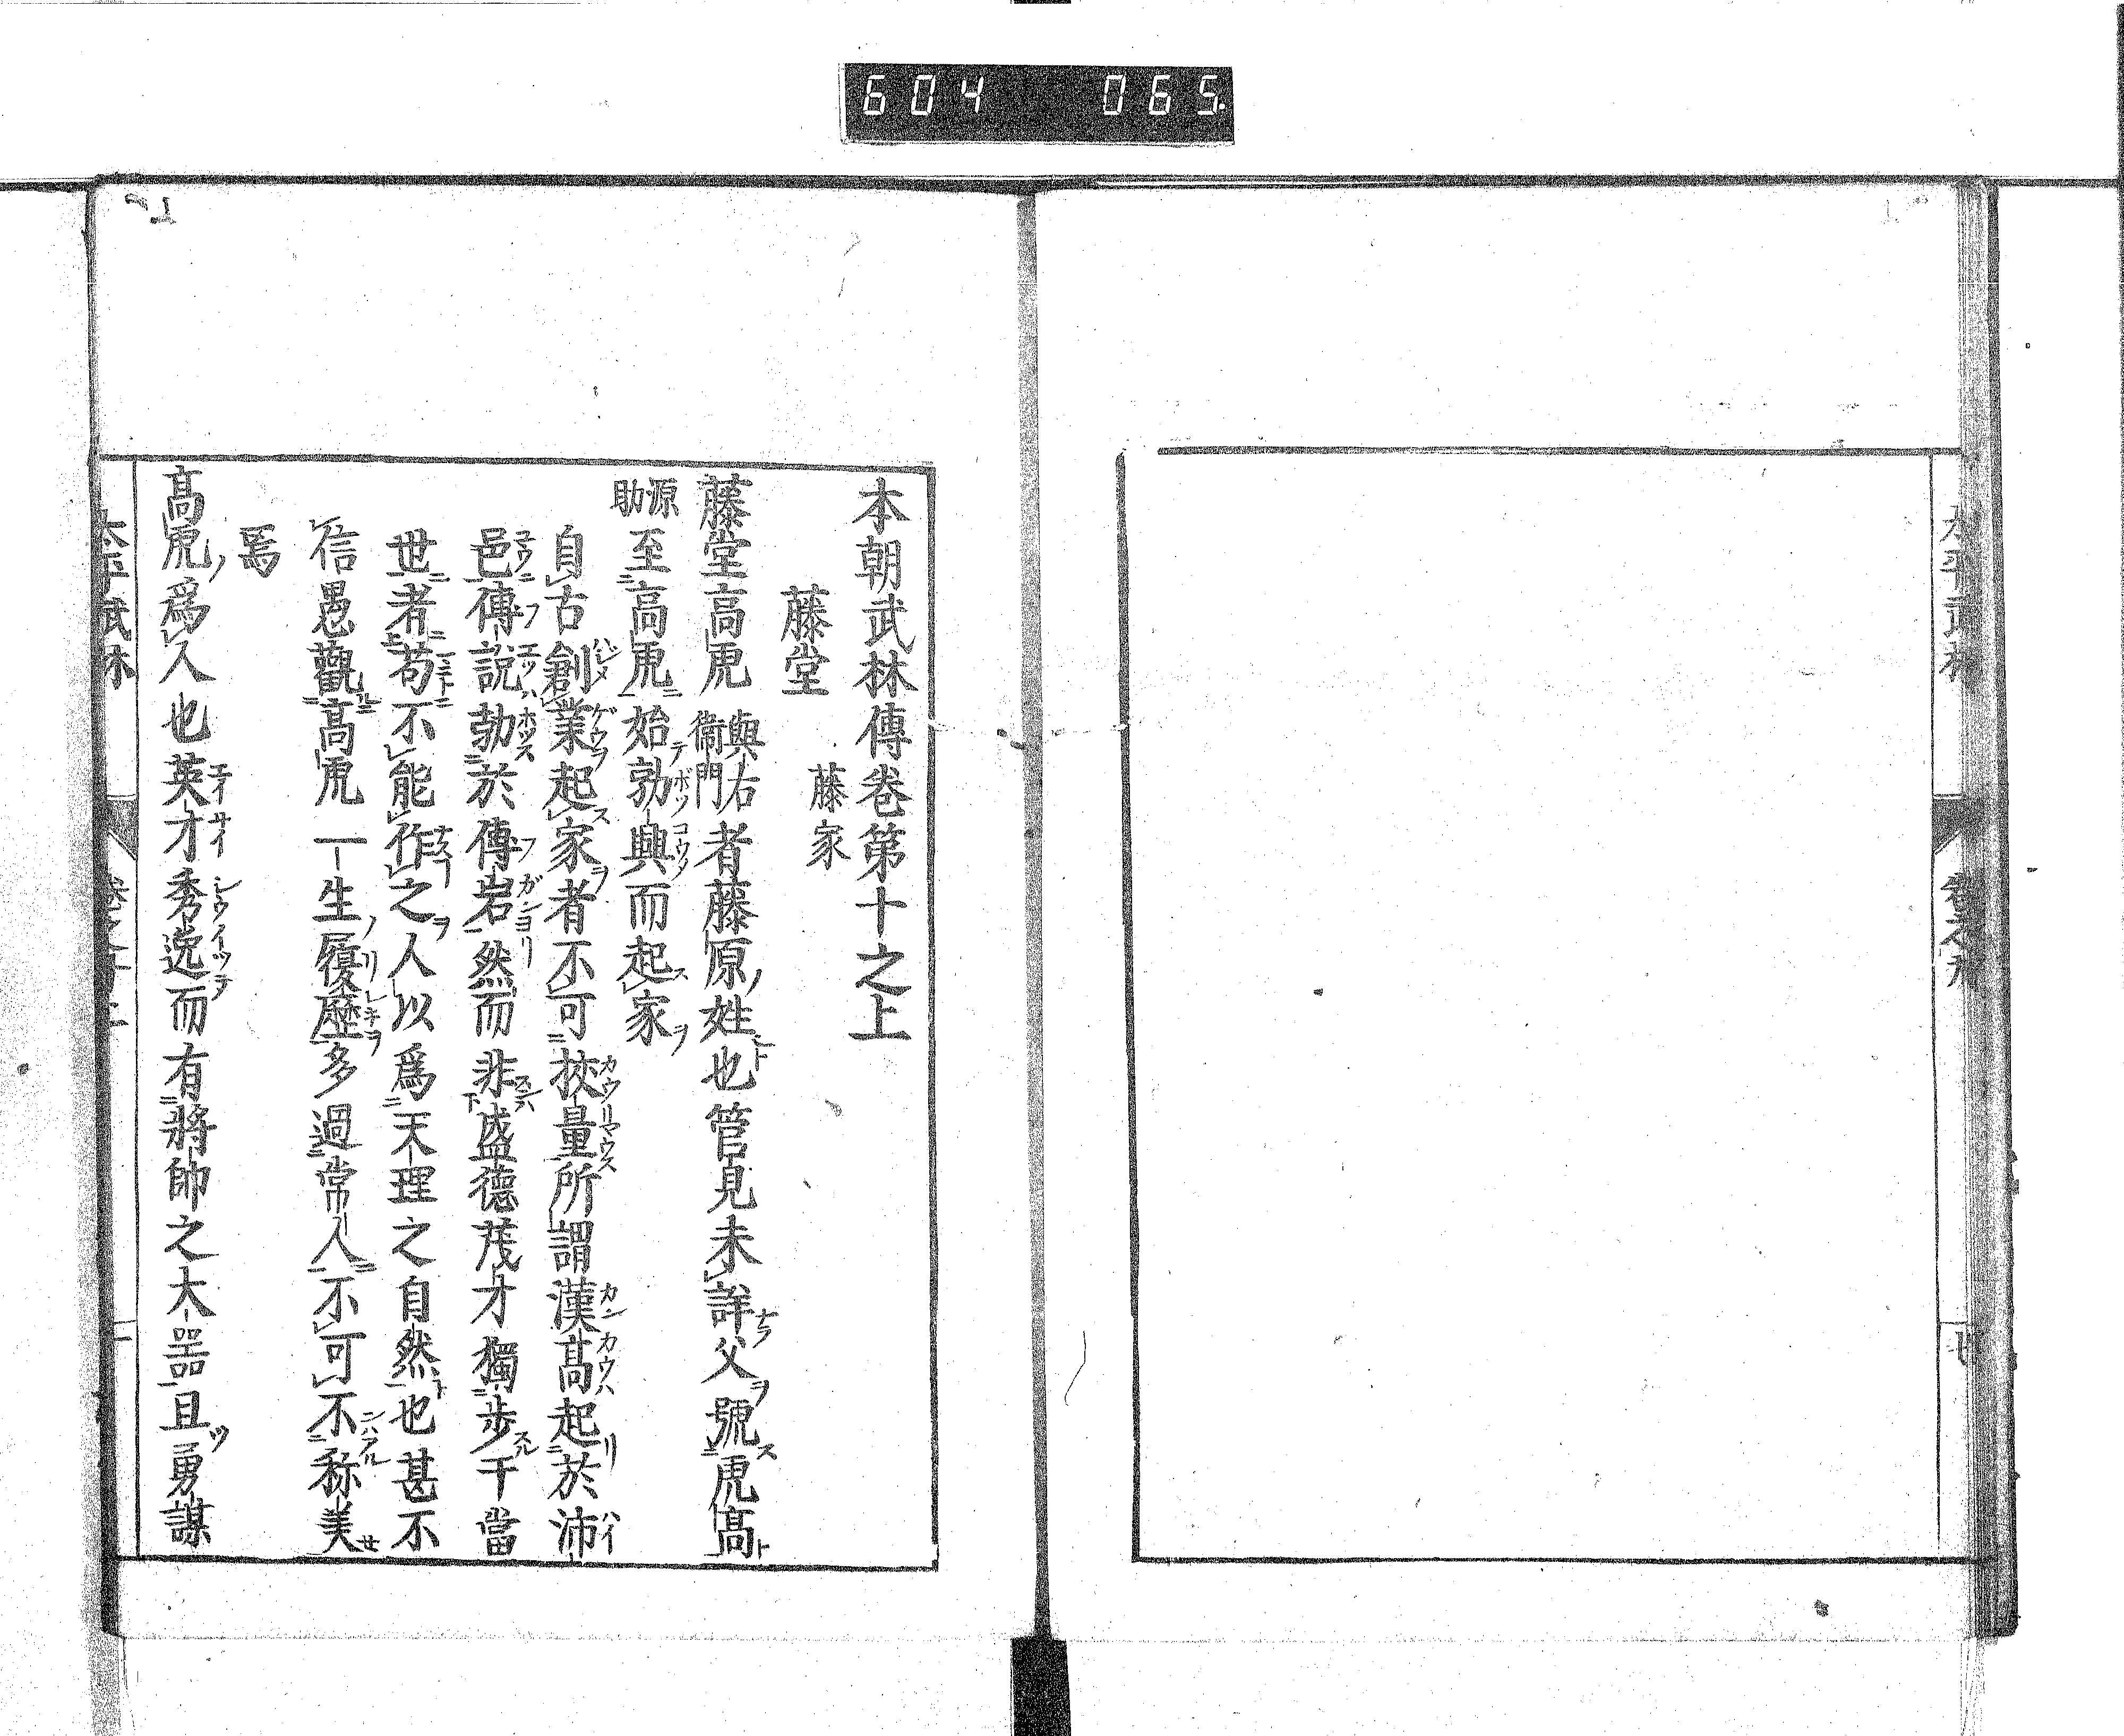 604 065.
太平武林 卷之九
本朝武林傳卷第十之上
藤堂 藤家
藤堂高虎 與右衞門 者藤原姓也管見未詳父號虎高
源助 至高虎始勃興而起家
自古創業起家者不可挍量所謂漢高起於沛
邑傳說勃於傅岩然而非盛德茂才獨步千當
世者苟不能作之人以爲天理之自然也甚不
信愚觀高虎一生履歷多過常人不可不称美
焉
高虎爲人也英才秀逸而有將帥之大器且勇謀
太平武林